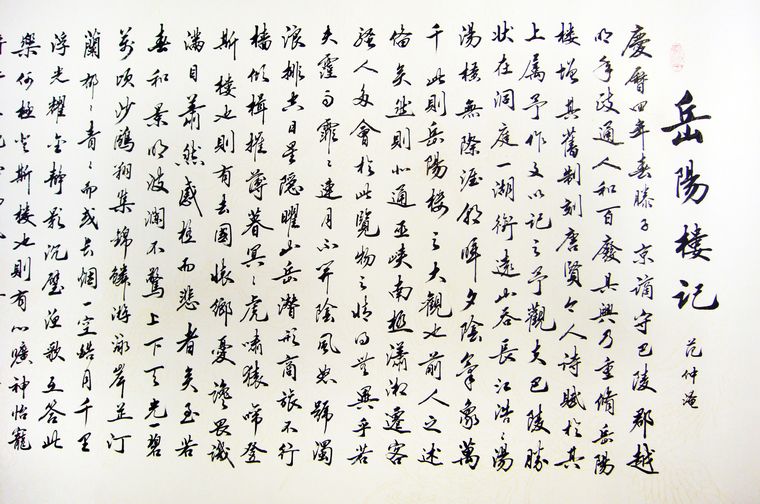 岳陽樓記
范仲淹
慶曆四年春滕子京謫守巴陵郡越
明年政通人和百廢具興乃重脩岳陽
樓增其舊制刻唐賢今人詩賦於其
上屬予作文以記之予觀夫巴陵勝
狀在洞庭一湖銜遠山吞長江浩〻湯
湯橫無際涯朝暉夕陰氣象萬
千此則岳陽樓之大觀也前人之述
備矣然則北通巫峽南極瀟湘遷客
騷人多會於此覽物之情得無異乎若
夫霪雨霏〻連月不開陰風怒號濁
浪排空日星隱曜山岳潛形商旅不行
檣傾楫摧薄暮冥〻虎嘯猿啼登
斯樓也則有去國懷鄉憂讒畏譏
滿目蕭然感極而悲者矣至若
春和景明波瀾不驚上下天光一碧
萬頃沙鷗翔集錦鱗游泳岸芷汀
蘭郁〻青〻而或長烟一空皓月千里
浮光耀金靜影沉璧漁歌互答此
樂何極登斯樓也則有心曠神怡寵